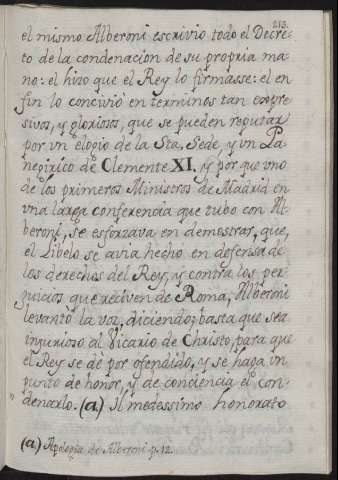 213.
el mismo Alberoni escrivio todo el Decre-
to de la condenacion de su propria ma-
no: el hizo que el Rey lo firmasse: el en
fin lo concivió en terminos tan expre-
sivos, y gloriosos, que se pueden reputar
por vn elogio de la Sta. Sede, y vn Pa
negirico de Clemente XI. y por que vno
de los primeros Ministros de Madrid en
vna larga conferencia que tubo con Al-
beroni, se esforzava en demostrar, que,
el Libelo se avia hecho en defensa de
los derechos del Rey, y contra los per
juicios que reciven de Roma, Alberoni
levanto la voz, diciendo; basta que sea
injurioso al Vicario de Christo, para que
el Rey se dé por ofendido, y se haga vn
punto de honor, y de conciencia el con-
denarlo. (a) Il medessimo honorato
(a) Apologia de Alberoni p. 12.